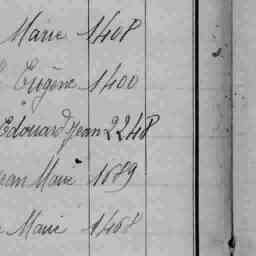 Marie 1408
Eugène 1400
Edouard Jean 2248
Jean Marie 1689
Marie 1468